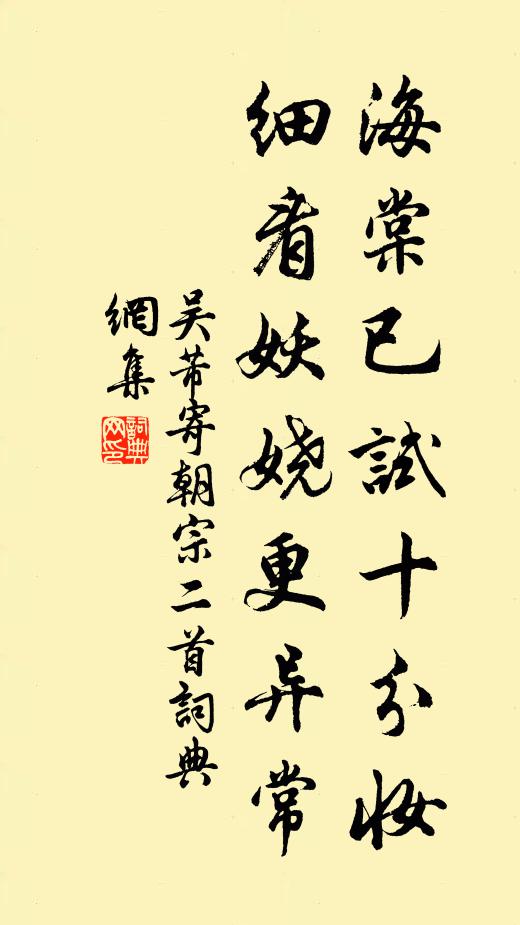 海棠已試十分妝
细看妖娆更异常
吴芾寄朝宗二首詞典
網集
詞典網印